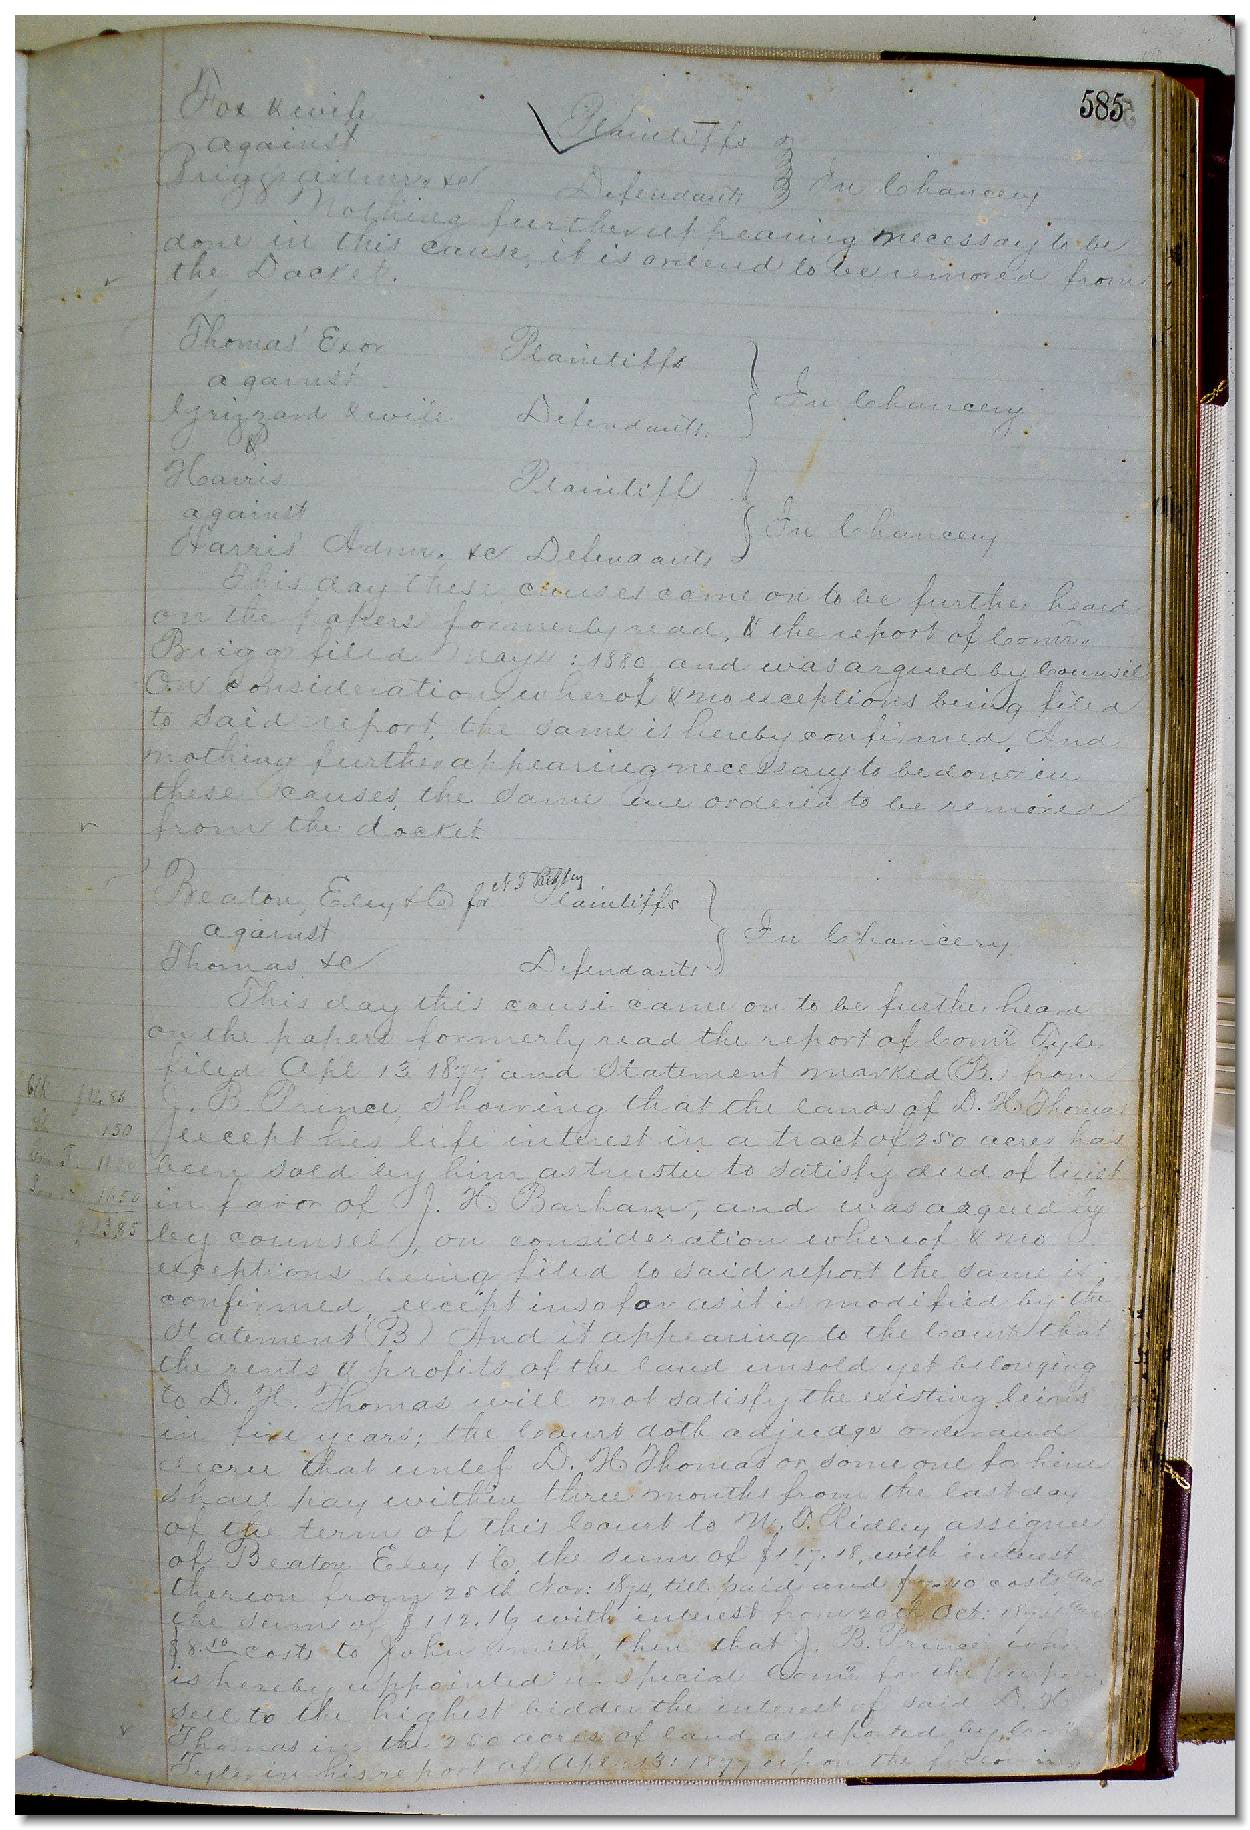 585
Fox & wife
against Plaintiffs
Briggs admr. &c Defendants In Chancery
Nothing further appearing necessary to be
done in this cause, it is ordered to be removed from
the Docket.
Thomas' Exor Plaintiffs
against In Chancery
Grizzard & wife Defendants.
&
Harris Plaintiff
against In Chancery
Harris' Admr. &c Defendants
This day these causes came on to be further heard
on the papers formerly read, & the report of Comr.
Briggs filed May 4: 1880 and was argued by Counsel
On consideration wherof & no exceptions being filed
to said report, the same is hereby confirmed, And
nothing further appearing necessary to be done in
these causes, the same are ordered to be removed
from the docket
Beaton, Eley & Co for Plaintiffs
against In Chancery
Thomas &c Defendants
This day this cause came on to be further heard
on the papers formerly read the report of Comr. Tyler
filed Apl 13 1877 and Statement marked (B.) from
J. B. Prince showing that the lands of D. H. Thomas
except his life interest in a tract of 250 acres has
been sold by him as trustee to satisfy deed of trust
in favor of J. H. Barham, and was argued by
by counsel, on consideration whereof & no
exceptions being filed to said report the same is
confirmed, except insofar as it is modified by the
Statement (B) And it appearing to the Court that
the rents & profits of the land unsold yet belonging
to D. H. Thomas will not satisfy the existing leins
in five years; the Court doth adjudge order and
decree that unless D. H. Thomas or some one for him
shall pay within three months from the last day
of the term of this Court to N. T. Ridley assignee
of Beaton Eley & Co, the sum of $117.18, with interest
thereon from 28th Nov: 1874, till paid and costs and
the sum of $112.16 with interest from 20th Oct:
$8.10 costs to John Smith, then that J. B. Prince who
is hereby appointed a special Comr. for the purpose
sell to the highest bidder the interest of said D. H.
Thomas in the 250 acres of land as reported by Comr.
Tyler in his report of Apl 13: 1877 upon the following
150